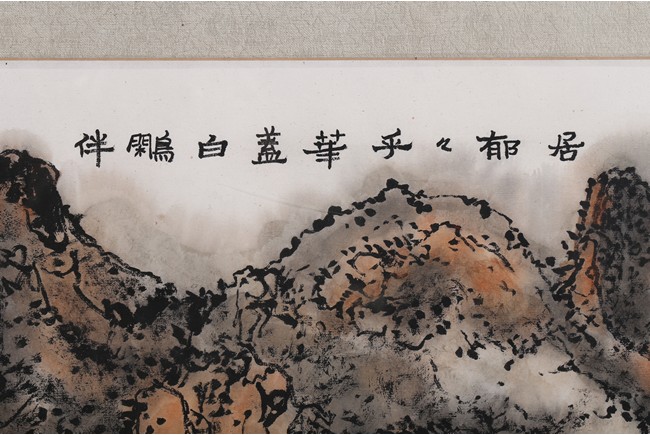 居郁々乎華蓋白鷼伴